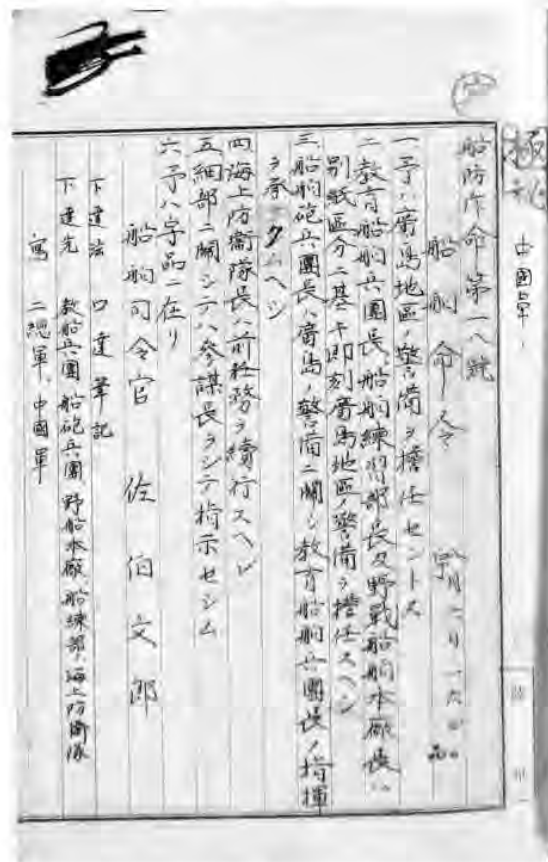 極秘
船防作命第一八號
船舶命令
一予ハ廣島地區ノ警備ヲ擔任セントス
二教育船舶兵團長、船舶練習部長及野戰船舶本廠長ハ
別紙區分ニ基キ即刻廣島地區ノ警備ヲ擔任スヘシ
三船舶砲兵團長ハ廣島ノ警備ニ關シ教育船舶兵團長ノ指揮
ヲ承クヘシ
四海上防衞隊長ハ前任務ヲ續行スヘシ
五細部ニ關シテハ參謀長ヲシテ指示セシム
六予ハ宇品ニ在リ
船舶司令官 佐伯文郎
下達法 口達筆記
下達先 教船兵團、船砲兵團、野船本廠、船練部、海上防衞隊
寫 二總軍、中國軍